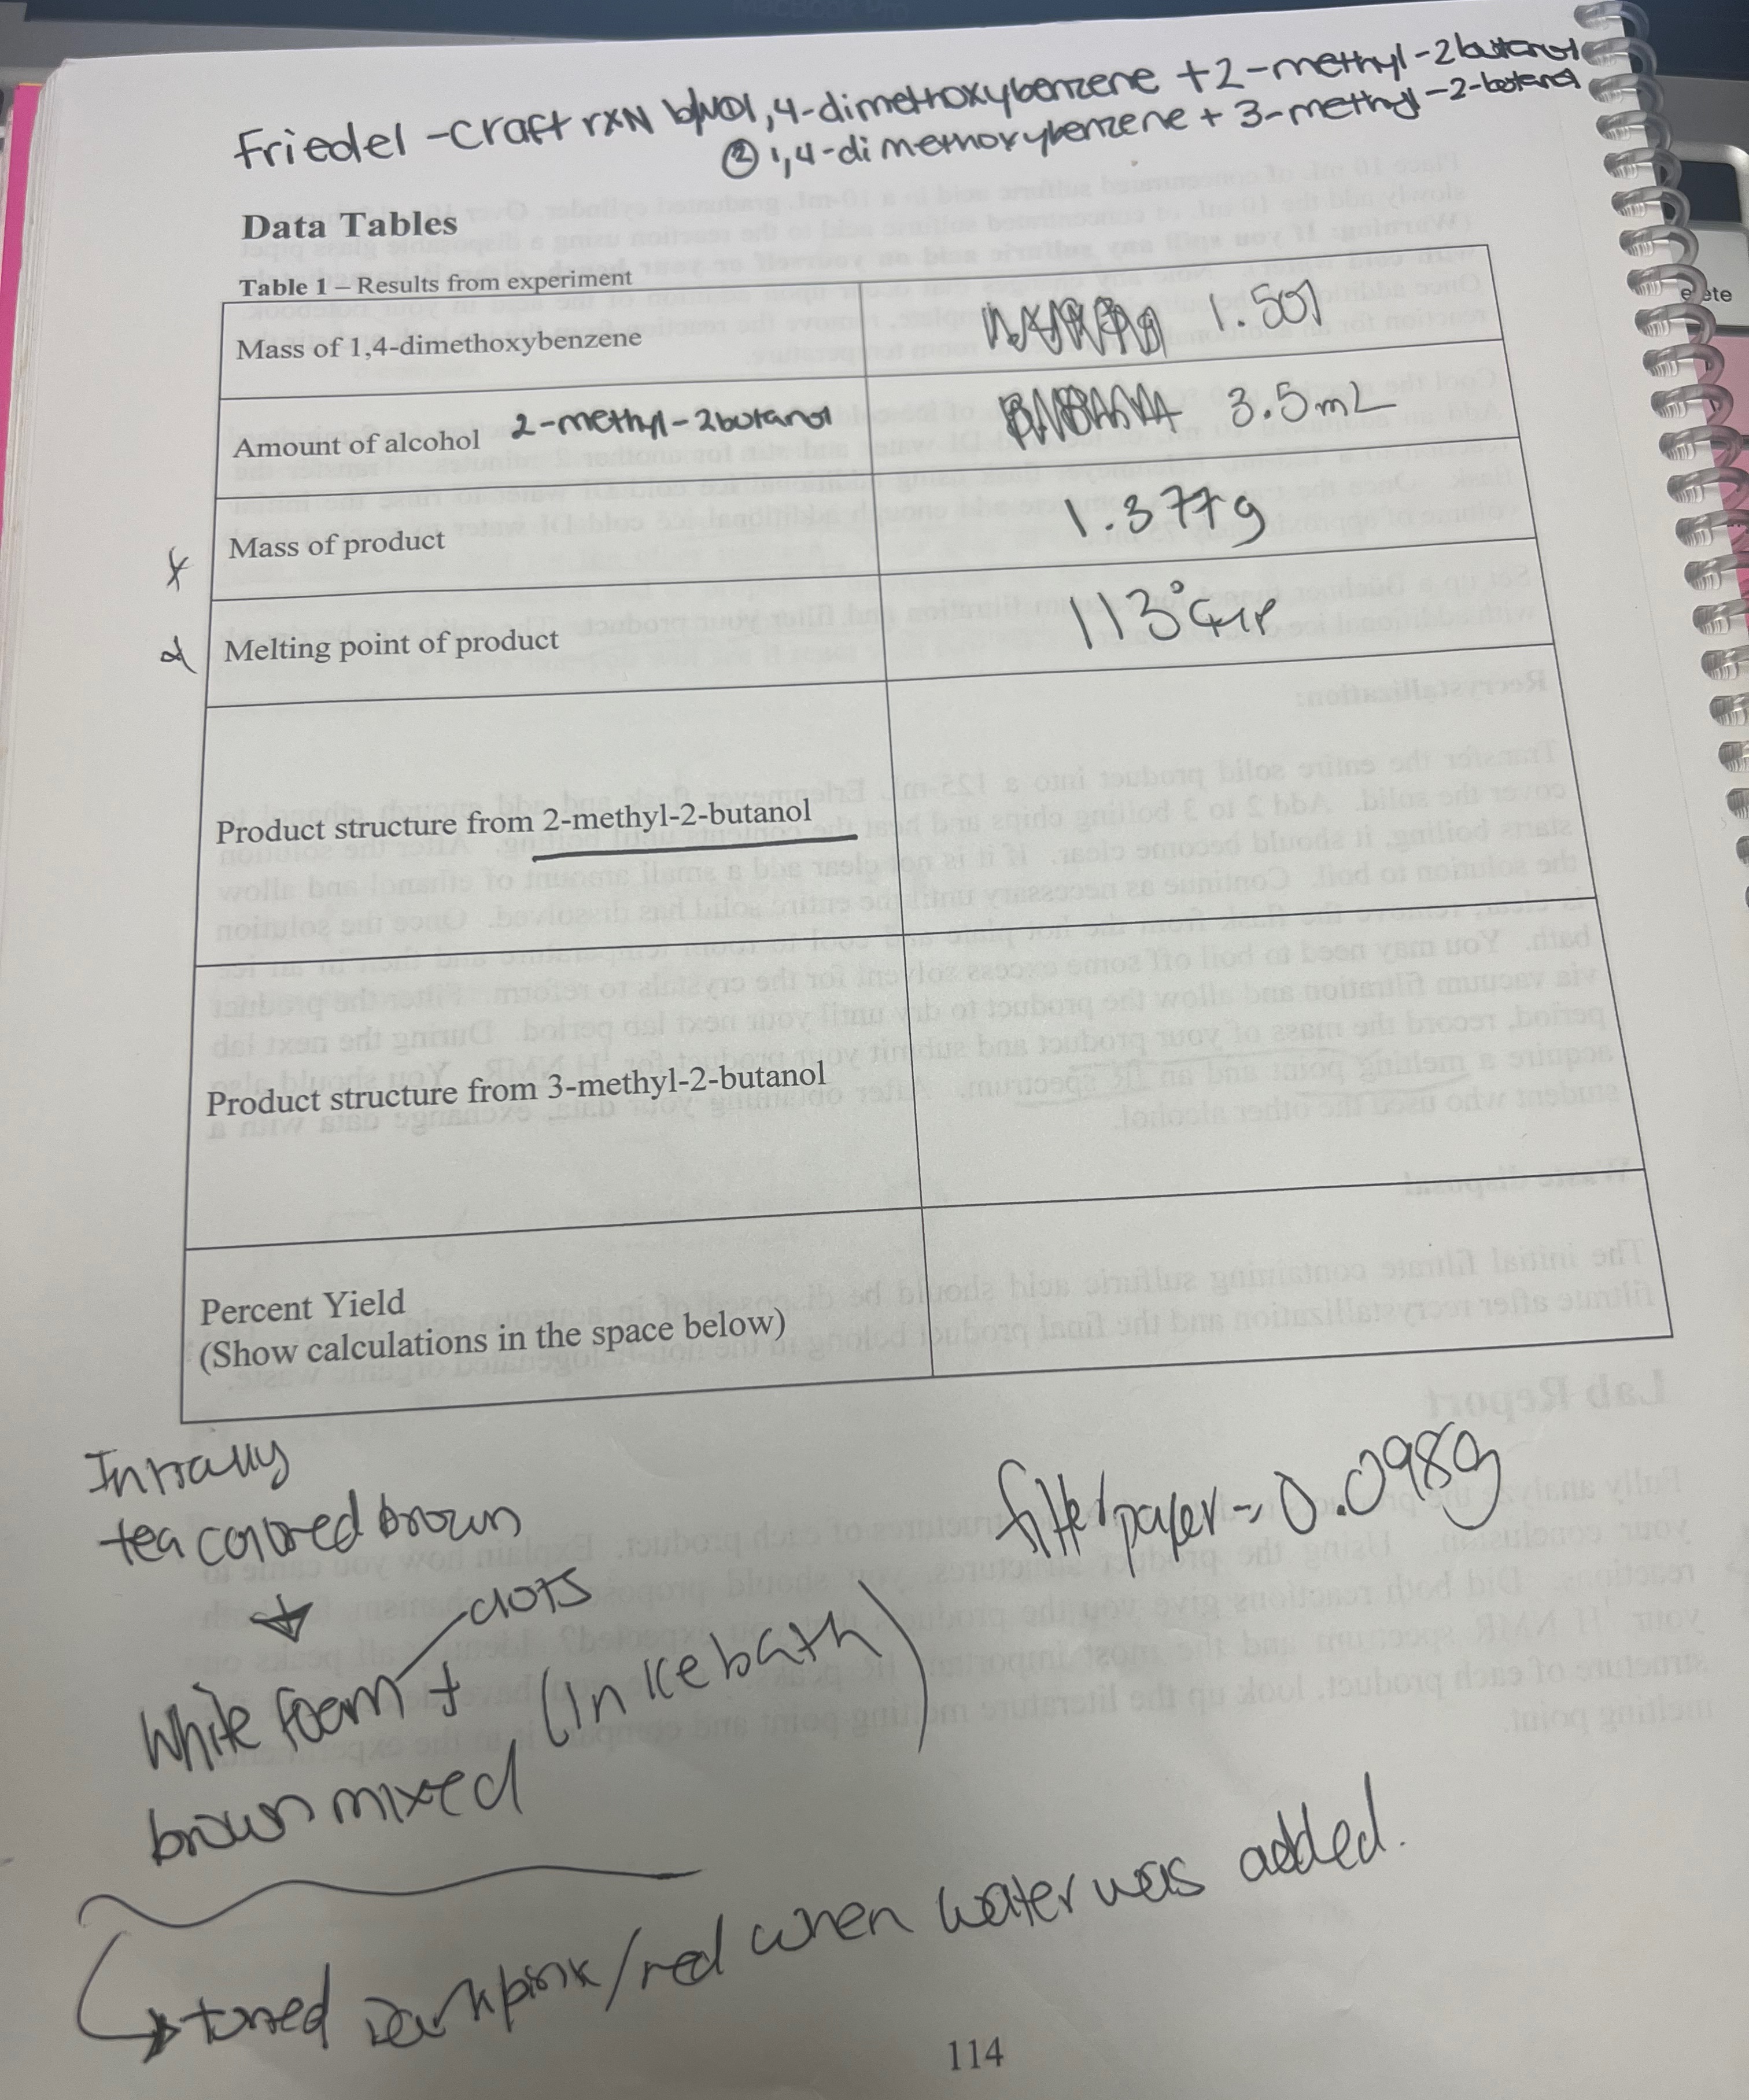 Friedel-craft rxN b/w ① 1,4-dimethoxybenzene + 2-methyl-2butanol
② 1,4-dimethoxybenzene + 3-methyl-2-butanol
Data Tables
Table 1 – Results from experiment
Mass of 1,4-dimethoxybenzene 1.501
Amount of alcohol 2-methyl-2butanol 3.5mL
Mass of product 1.377g
Melting point of product 113°C
Product structure from 2-methyl-2-butanol
Product structure from 3-methyl-2-butanol
Percent Yield
(Show calculations in the space below)
Initially
tea colored brown
filter paper → 0.098g
clots
White foam + (in ice bath)
brown mixed
→ turned dark pink/red when water was added.
114